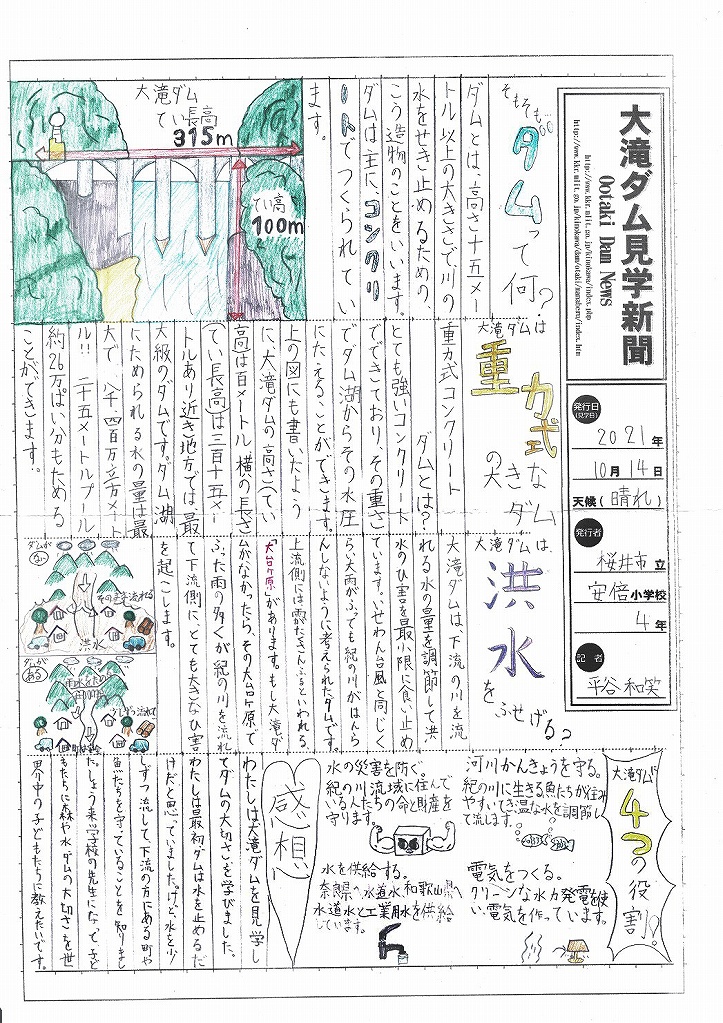 大滝ダム見学新聞
Ootaki Dam News
http://www.kkr.mlit.go.jp/kinokawa/index.php
http://www.kkr.mlit.go.jp/kinokawa/dam/otaki/manaberu/index.htm
発行日
(見学日)
2021年
10月14日
天候(晴れ)
発行者
桜井市立
安倍小学校
4年
記者
平谷和笑
そもそも…
ダムって何?
ダムとは、高さ十五メ
トル以上の大きさで川の
水をせき止めるための、
こう造物のことをいいます。
ダムは主に、コンクリ
ートでつくられてい
ます。
大滝ダム
てい長高
315m
てい高
100m
大滝ダムは
重力式
の大きな
ダム
重力式コンクリート
ダムとは?
とても強いコンクリート
でできており、その重さ
でダム湖からその水圧
にたえることができます。
上の図にも書いたよう
に、大滝ダムの高さ(てい
高)は百メートル横の長さ
(てい長高)は三百十五メー
トルあり近き地方では、最
大級のダムです。ダム湖
にためられる水の量は最
大で八千四百万立方メート
ル!!二十五メートルプール
約26万ぱい分もためる
ことができます。
大滝ダムは、
洪水
をふせげるっ
大滝ダムは、下流の川を流
れる水の量を調節して洪
水のひ害を最小限に食い止め
ています。いせわん台風と同じく
らい大雨がふっても紀の川がはんら
んしないように考えられたダムです。
上流側には雲がたくさんふるといわれる、
「大台ヶ原」があります。もし大滝ダ
ムがなかったら、その大台ヶ原で
ふった雨の多くが紀の川を流れ
て下流側に、とても大きなひ害
を起こします。
ダムが
ない
そのまま流れる
洪水
ダムが
ある
大滝ダムの
4つの役割?
河川かんきょうを守る。
紀の川に生きる魚たちが住み
やすいてき温な水を調節し
て流します。
電気をつくる。
クリーンな水力発電を使
い電気を作っています。
水の災害を防ぐ。
紀の川流域に住んで
いる人たちの命と財産を
守ります。
水を供給する。
奈良県へ水道水和歌山県へ
水道水と工業用水を供給
しています。
感想
わたしは大滝ダムを見学し
てダムの大切さを学びました。
わたしは最初ダムは水を止めるだ
けだと思っていました。けど、水を少
しずつ流して、下流の方にある町や
魚たちを守っていることを知りまし
た。しょう来、学校の先生になって子ど
もたちに森や水、ダムの大切さを世
界中の子どもたちに教えたいです。